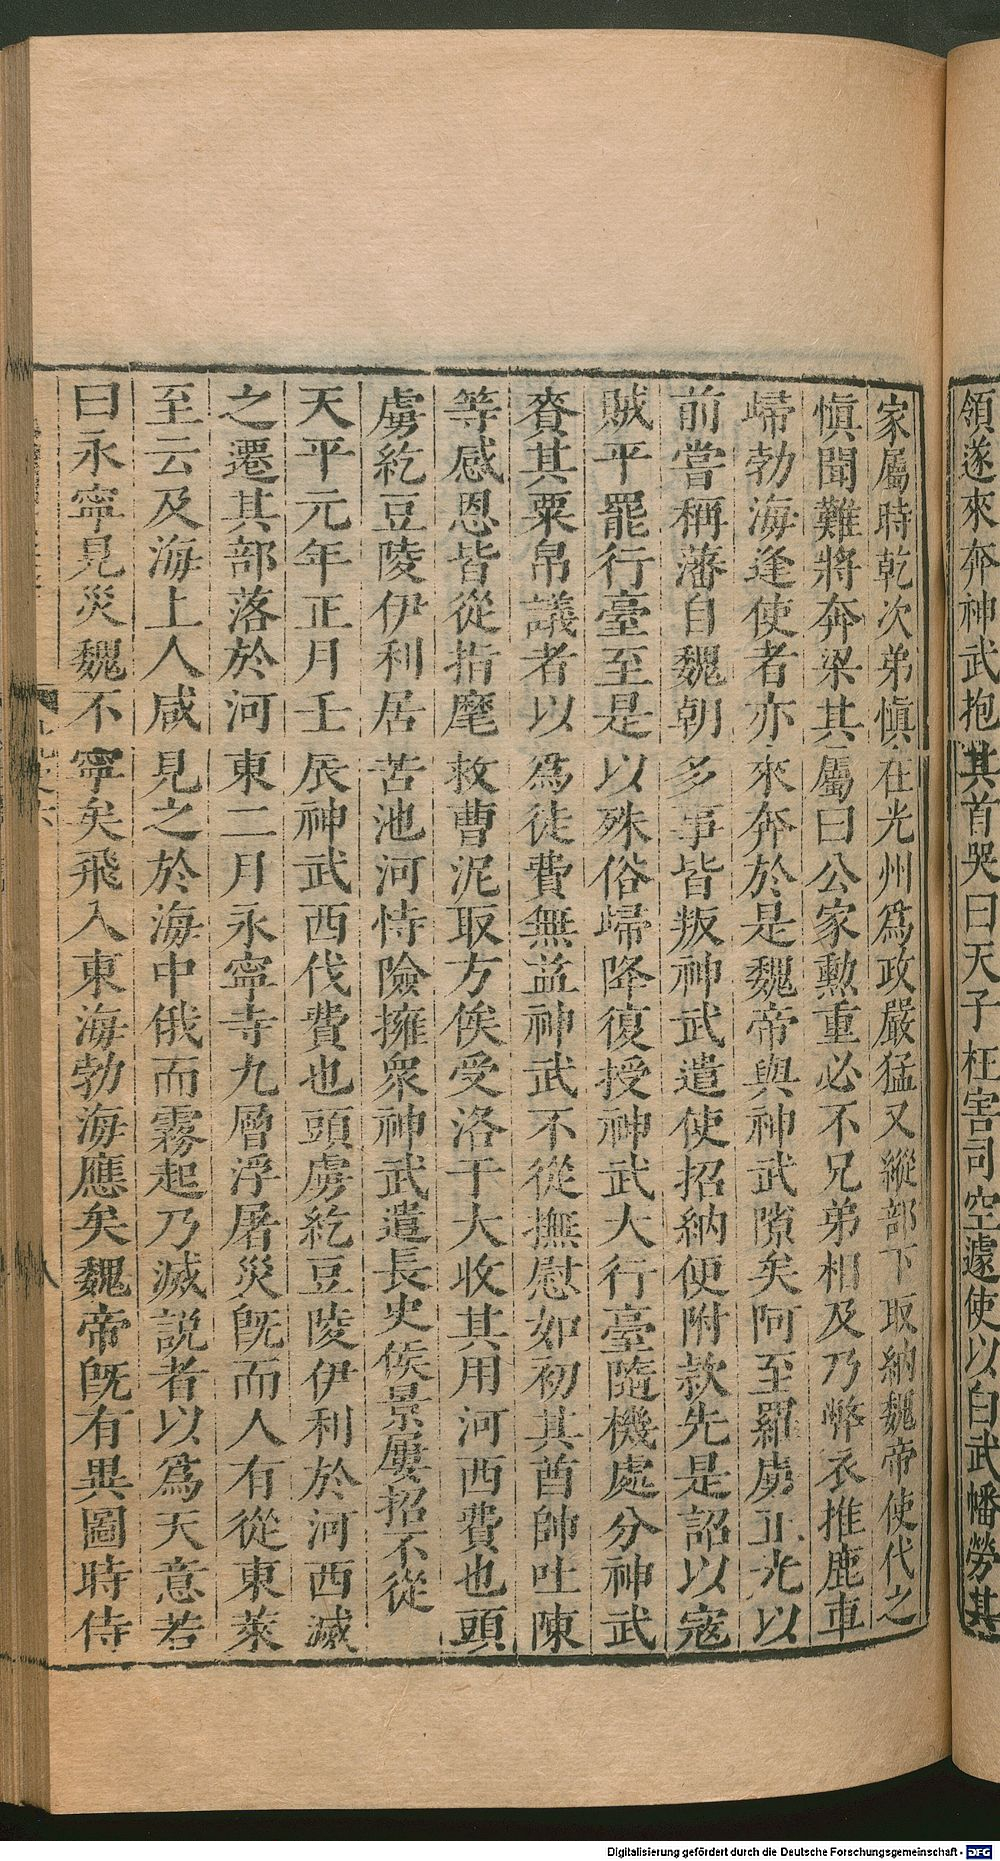 領遂來奔神武抱其首哭曰天子枉害司空遽使以白武幡勞其
家屬時乾次弟愼在光州爲政嚴猛又縱部下取納魏帝使代之
愼聞難將奔梁其屬曰公家勳重必不兄弟相及乃弊衣推鹿車
歸勃海逢使者亦來奔於是魏帝與神武隙矣阿至羅虜正光以
前嘗稱藩自魏朝多事皆叛神武遣使招納便附款先是詔以寇
賊平罷行臺至是以殊俗歸降復授神武大行臺隨機處分神武
賚其粟帛議者以爲徒費無益神武不從撫慰如初其酋帥吐陳
等感恩皆從指麾救曹泥取万俟受洛干大收其用河西費也頭
虜紇豆陵伊利居苦池河恃險擁衆神武遣長史侯景屢招不從
天平元年正月壬辰神武西伐費也頭虜紇豆陵伊利於河西滅
之遷其部落於河東二月永寧寺九層浮屠災既而人有從東萊
至云及海上人咸見之於海中俄而霧起乃滅説者以爲天意若
曰永寧見災魏不寧矣飛入東海勃海應矣魏帝既有異圖時侍
Digitalisierung gefördert durch die Deutsche Forschungsgemeinschaft - DFG